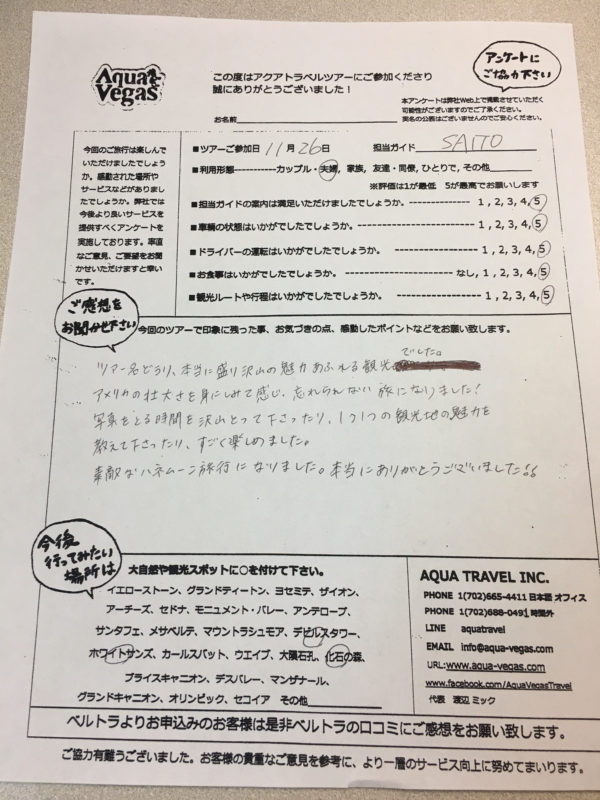 Aqua
Vegas
この度はアクアトラベルツアーにご参加くださり
誠にありがとうございました！
アンケートに
ご協力下さい
本アンケートは弊社Web上で掲載させていただく
可能性がございますのでご了承ください。
実名の公表はございませんのでご安心ください。
お名前
今回のご旅行は楽しんで
いただけましたでしょう
か。感動された場所や
サービスなどがありまし
たでしょうか。弊社では
今後より良いサービスを
提供すべくアンケートを
実施しております。率直
なご意見、ご要望をお聞
かせいただけますと幸い
です。
■ツアーご参加日 11月26日 担当ガイド SAITO
■利用形態------------カップル・夫婦, 家族, 友達・同僚, ひとりで, その他
※評価は1が最低 5が最高でお願いします
■担当ガイドの案内は満足いただけましたでしょうか。-------------- 1 , 2, 3, 4, 5
■車輌の状態はいかがでしたでしょうか。-------------------------- 1 , 2, 3, 4, 5
■ドライバーの運転はいかがでしたでしょうか。-------------------- 1 , 2, 3, 4, 5
■お食事はいかがでしたでしょうか。 -------------------- なし, 1 , 2, 3, 4, 5
■観光ルートや行程はいかがでしたでしょうか。 ------------------ 1 , 2, 3, 4, 5
ご感想を
お聞かせ下さい
今回のツアーで印象に残った事、お気づきの点、感動したポイントなどをお願い致します。
ツアー名どうり、本当に盛り沢山の魅力あふれる観光でした。
アメリカの壮大さを身にしみて感じ、忘れられない旅になりました！
写真をとる時間を沢山とって下さったり、1つ1つの観光地の魅力を
教えて下さったり、すごく楽しめました。
素敵なハネムーン旅行になりました。本当にありがとうございました!!
今後
行ってみたい
場所は
大自然や観光スポットに○を付けて下さい。
イエローストーン、グランドティートン、ヨセミテ、ザイオン、
アーチーズ、セドナ、モニュメント・バレー、アンテロープ、
サンタフェ、メサベルデ、マウントラシュモア、デビルスタワー、
ホワイトサンズ、カールスバット、ウエイブ、大隕石孔、化石の森、
ブライスキャニオン、デスバレー、マンザナール、
グランドキャニオン、オリンピック、セコイア その他
AQUA TRAVEL INC.
PHONE 1(702)665-4411 日本語 オフィス
PHONE 1(702)688-0491 時間外
LINE aquatravel
EMAIL info@aqua-vegas.com
URL:www.aqua-vegas.com
www.facebook.com/AquaVegasTravel
代表 渡辺 ミック
ベルトラよりお申込みのお客様は是非ベルトラの口コミにご感想をお願い致します。
ご協力有難うございました。お客様の貴重なご意見を参考に、より一層のサービス向上に努めてまいります。